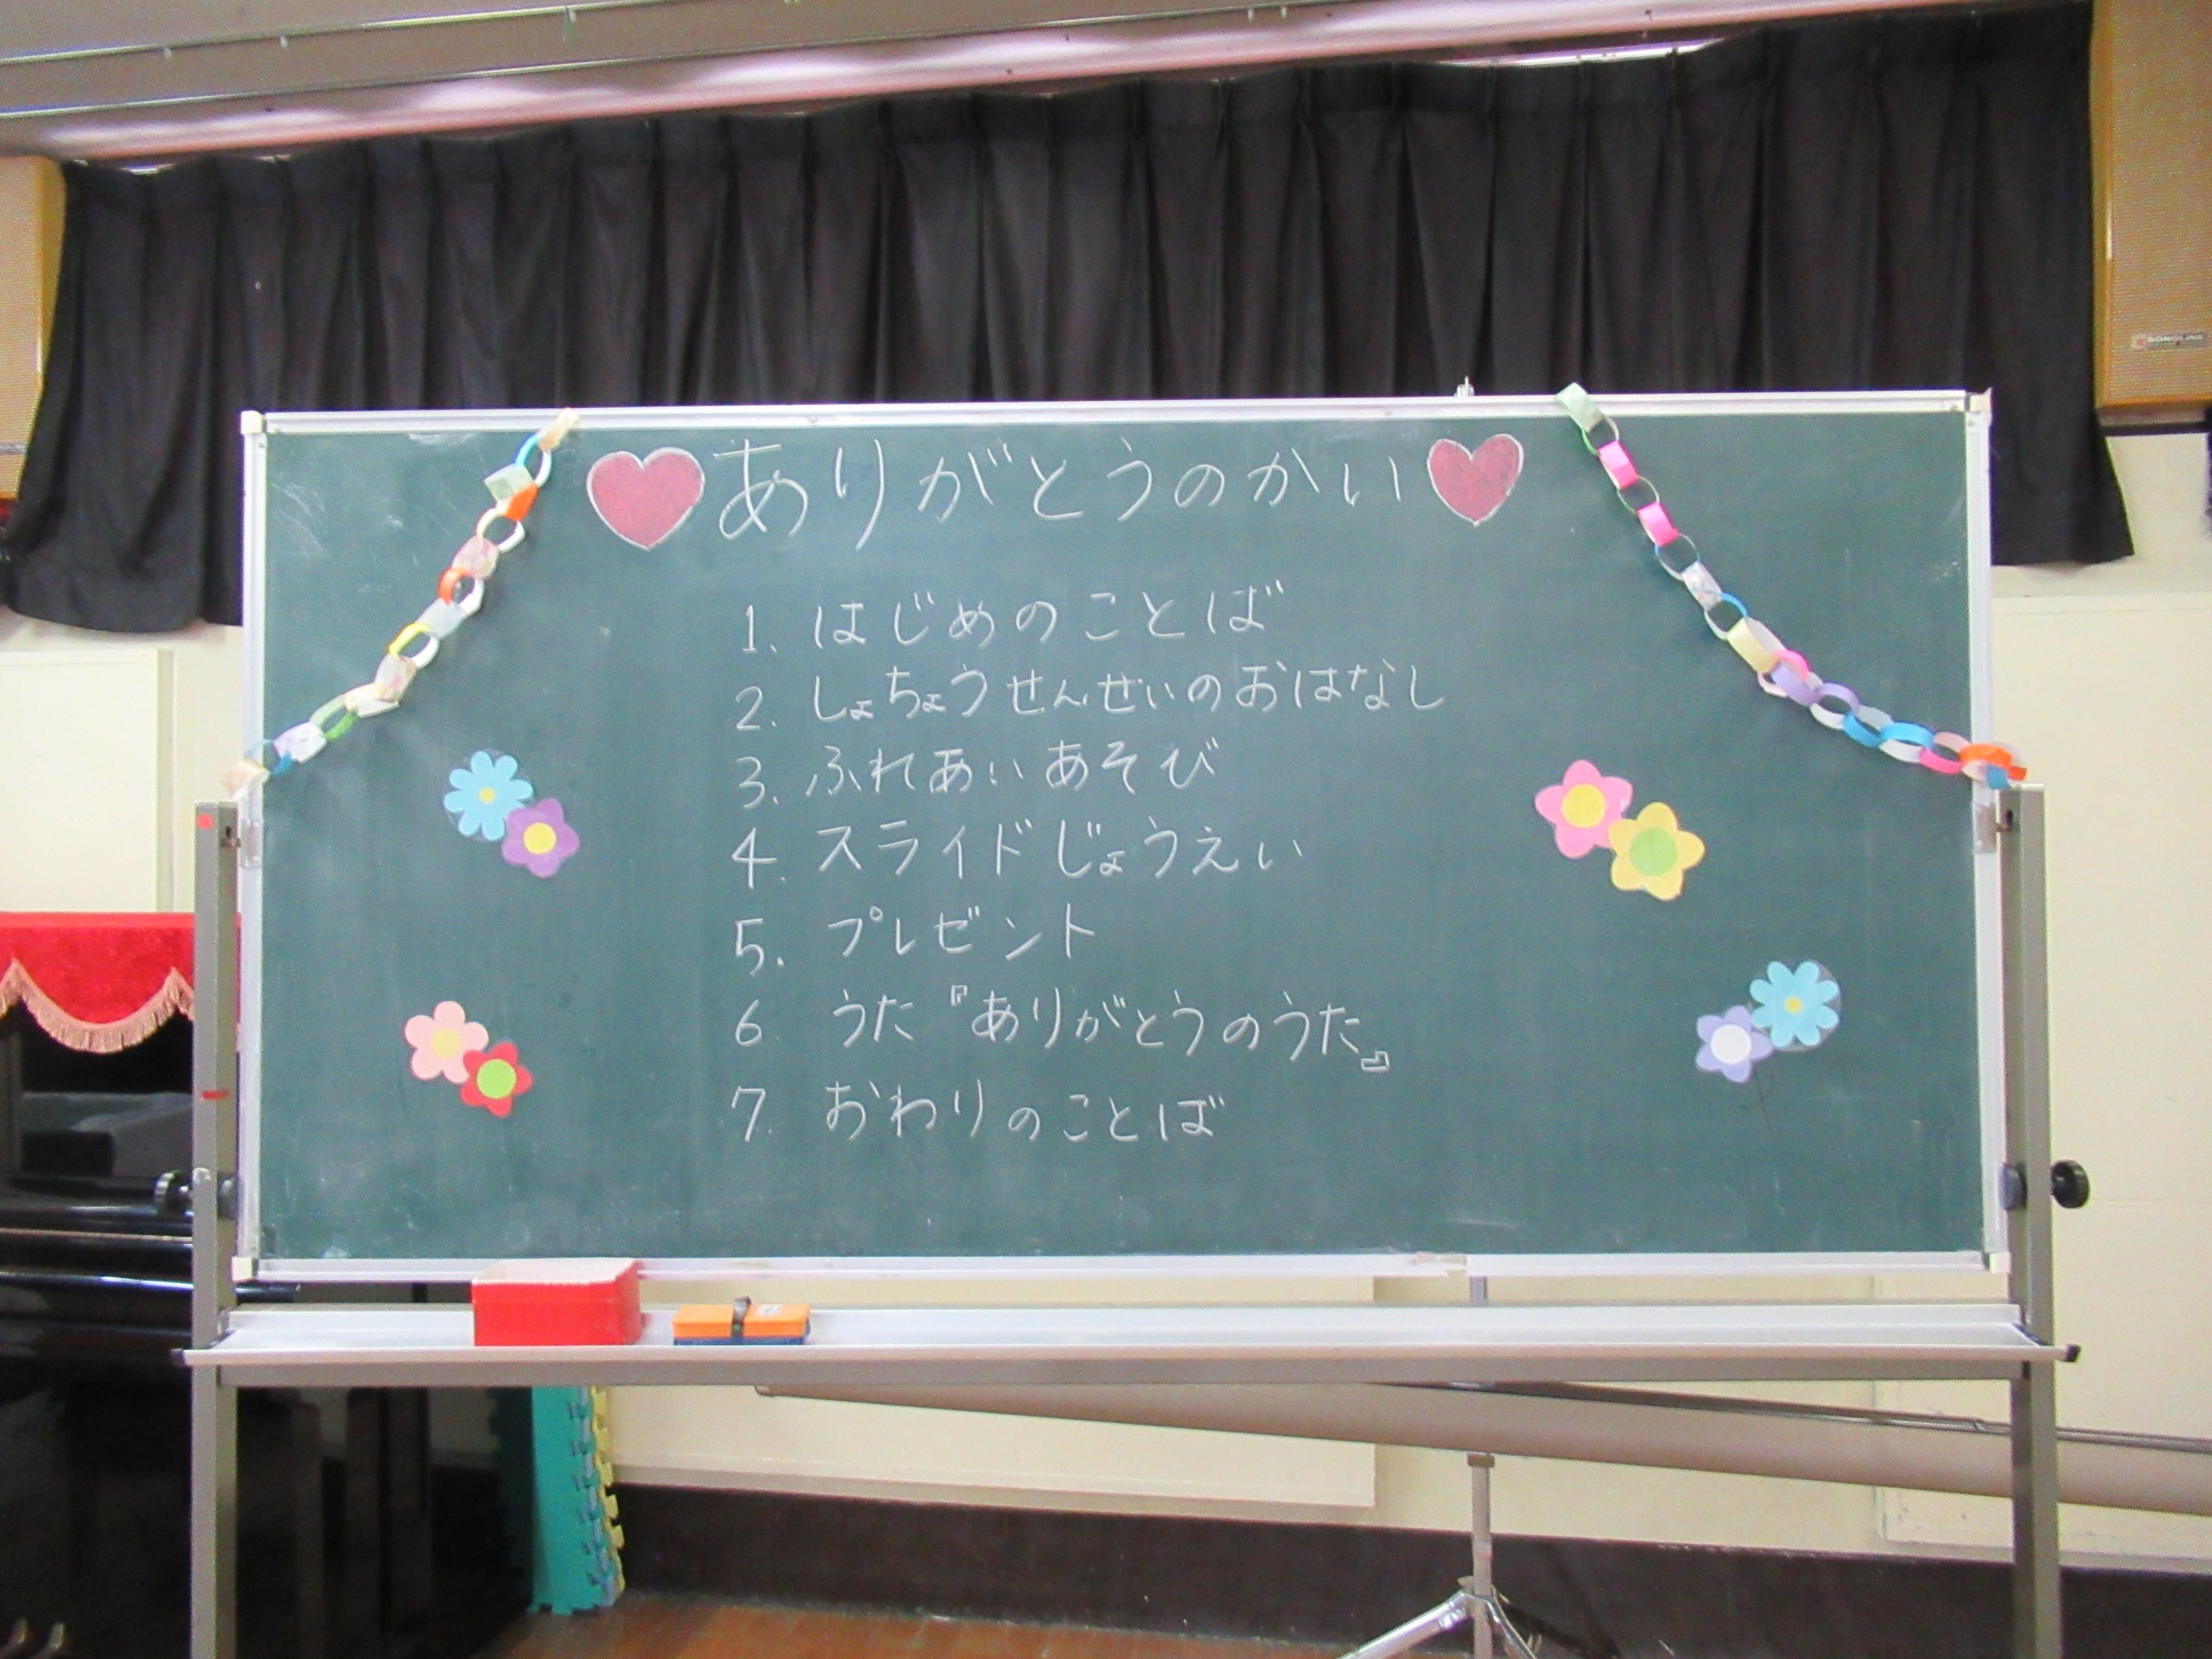 ありがとうのかい
1. はじめのことば
2. しょちょうせんせいのおはなし
3. ふれあいあそび
4. スライドじょうえい
5. プレゼント
6 うた『ありがとうのうた』
7. おわりのことば